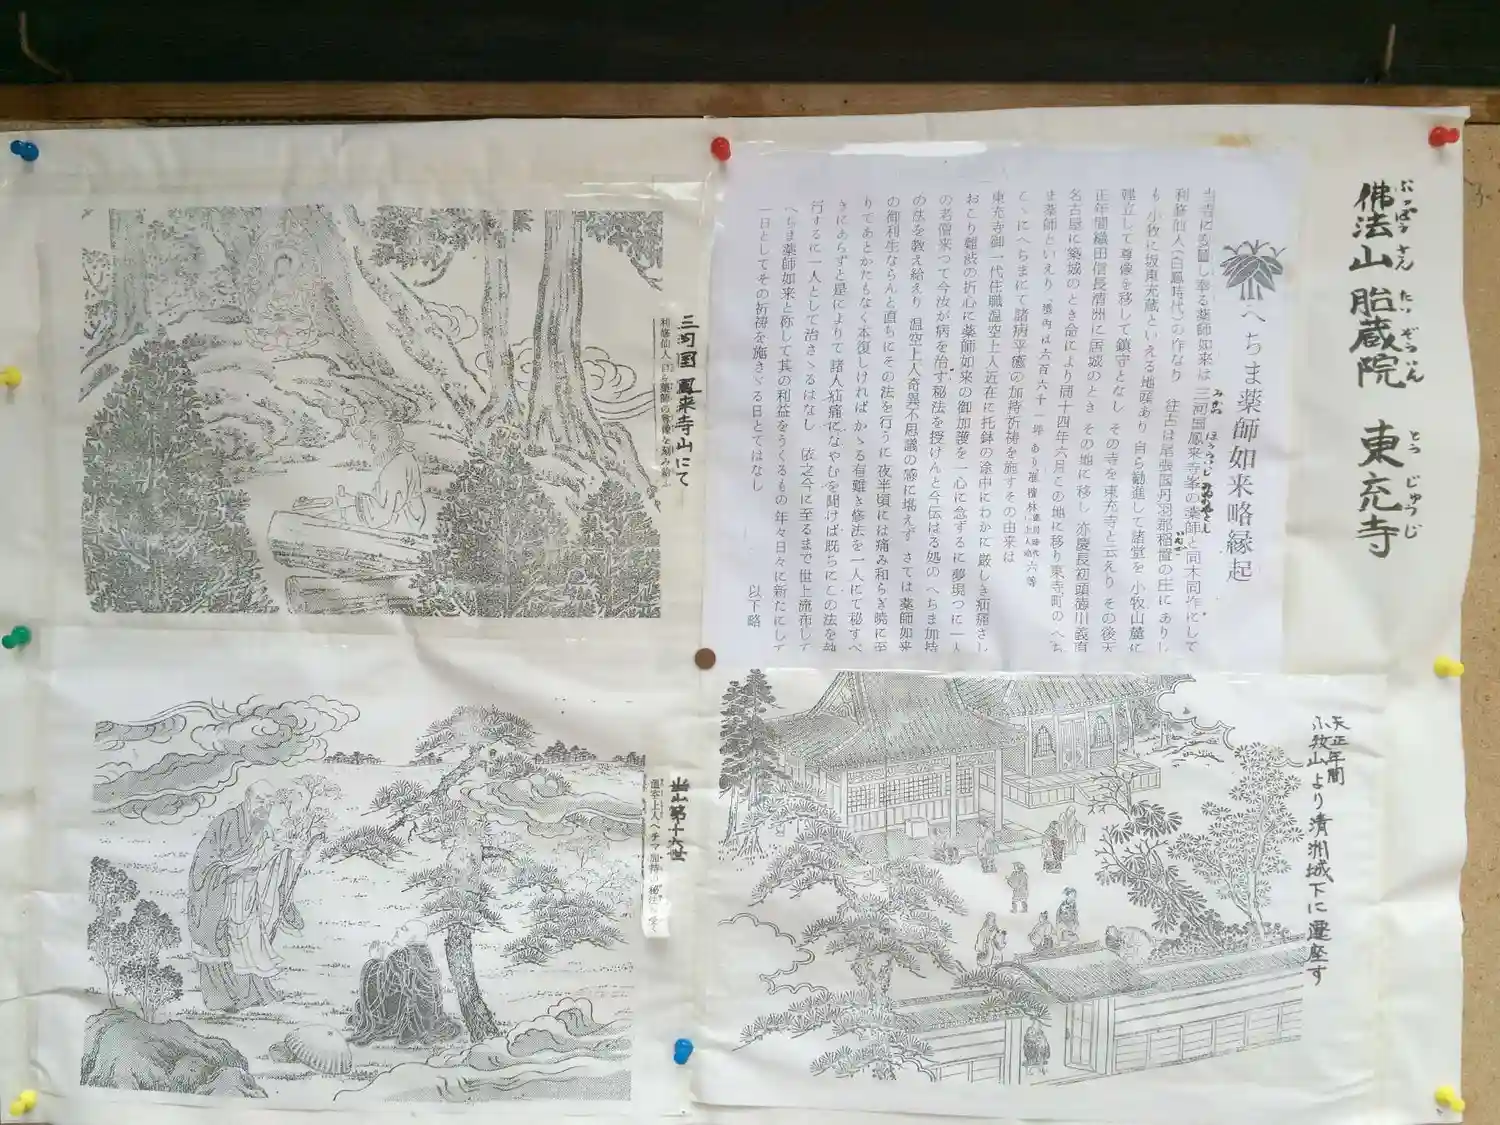 佛法山 胎蔵院 東充寺
ぶっぽうさん たいぞういん とうじゅうじ
へちま薬師如来略縁起
当寺に安置し奉る薬師如来は 三河国鳳来寺峯の薬師と同木同作にして
みかわ ほうらいじ みねのやくし
利修仙人(白鳳時代)の作なり 往古は尾張国丹羽郡稲置の庄にありし
いなご
も 小牧に坂東充蔵といえる地頭あり 自ら勧進して諸堂を 小牧山麓に
建立して尊像を移して鎮守となし その寺を東充寺と云えり その後天
正年間織田信長清洲に居城のとき その地に移し 亦慶長初頭徳川義直
名古屋に築城のとき命により同十四年六月この地に移り東寺町のへち
ま薬師といえり 境内は六百六十一坪あり
こゝにへちまにて諸病平癒の加持祈祷を施すその由来は
東充寺御一代住職温空上人近在に托鉢の途中にわかに厳しき疝痛さし
おこり難渋の折心に薬師如来の御加護を一心に念ずるに夢現つに一人
の老僧来つて今汝が病を治す秘法を授けんと今伝はる処の へちま加持
の法を教え給えり 温空上人奇異不思議の感に堪えず さては薬師如来
の御利生ならんと直ちにその法を行うに 夜半頃には痛み和らぎ暁に至
りてあとかたもなく本復しければ かゝる有難き修法を一人にて秘すべ
きにあらずと是によりて 諸人疝痛になやむを聞けば既ちにこの法を執
行するに一人として治さゞるはなし 依之今に至るまで世上流布して
へちま薬師如来と称して其の利益をうくるもの年々日々に新たにして
一日としてその祈祷を施さゞる日とてはなし
以下略
三河国 鳳来寺山にて
利修仙人
天正年間
小牧山より清洲城下に遷座す
当山第十六世
温空上人ヘチマ加持の秘法を受く